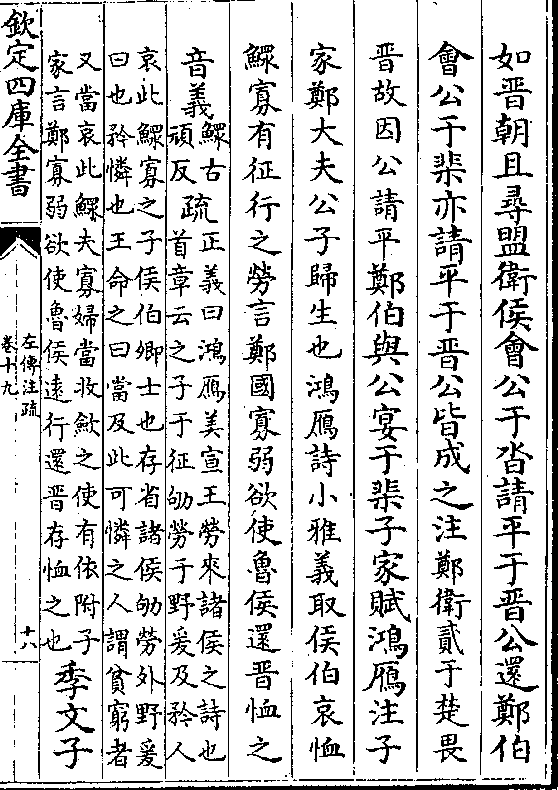 如晋朝且尋盟衛侯會公于沓請平于晋公還鄭伯
會公于棐亦請平于晋公皆成之注鄭衛貳于楚畏
晋故因公請平鄭伯與公宴于棐子家賦鴻鴈注子
家鄭大夫公子歸生也鴻鴈詩小雅義取侯伯哀恤
鰥寡有征行之勞言鄭國寡弱欲使魯侯還晋恤之
音義鰥古
頑反疏正義曰鴻鴈美宣王勞來諸侯之詩也
首章云之子于征劬勞于野爰及矜人
哀此鰥寡之子侯伯卿士也存省諸侯劬勞外野爰
曰也矜憐也王命之曰當及此可憐之人謂貧窮者
又當哀此鰥夫寡婦當收斂之使有依附子
家言鄭寡弱欲使魯侯遠行還晋存恤之也季文子
欽定四庫全書
左傳注疏
卷十九
十六